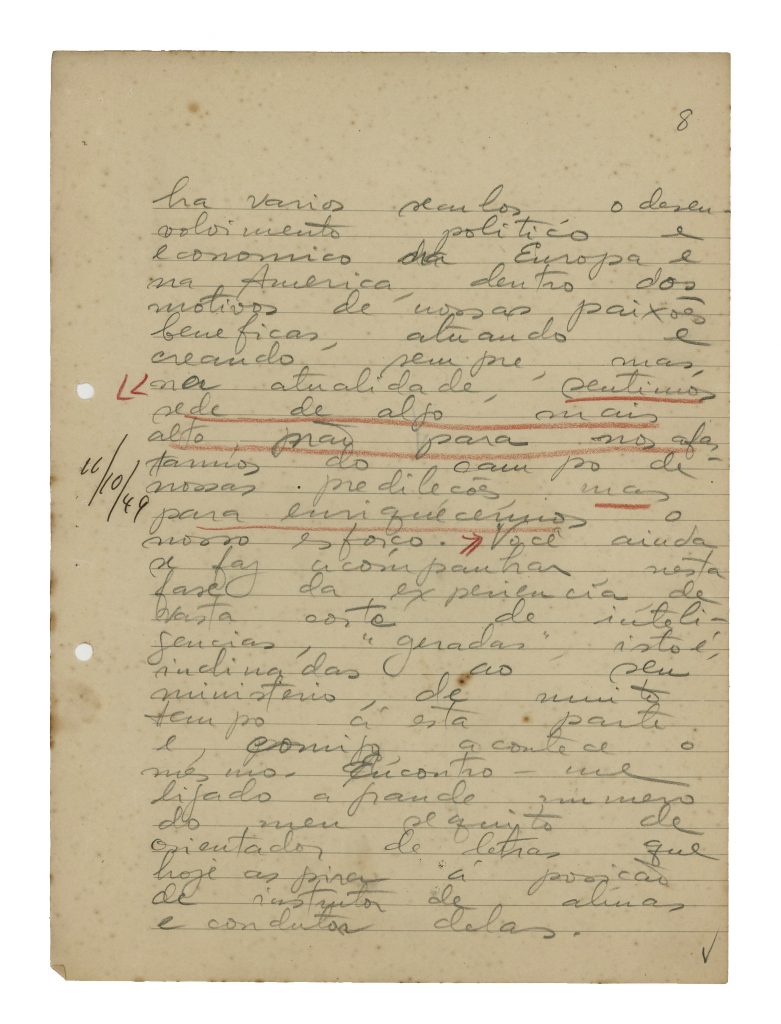 8
ha varios seculos o desen-
volvimento politico e
economico na Europa e
na America, dentro dos
motivos de nossas paixões
beneficas, atuando e
creando, sempre, mas,
na atualidade, sentimos
sede de algo mais
alto, não para nos afas-
tarmos do campo de
nossas predileções mas
para enriquecermos o
nosso esforço. Você ainda
se faz acompanhar nesta
fase da experiencia de
vasta corte de inteli-
gencias, "geradas", isto é,
inclinadas ao seu
ministerio, de muito
tempo á esta parte
e comigo acontece o
mesmo. Encontro-me
ligado a grande numero
do meu sequito de
orientador de letras que
hoje aspira á posição
de instrutor de almas
e condutor delas.
11/10/49